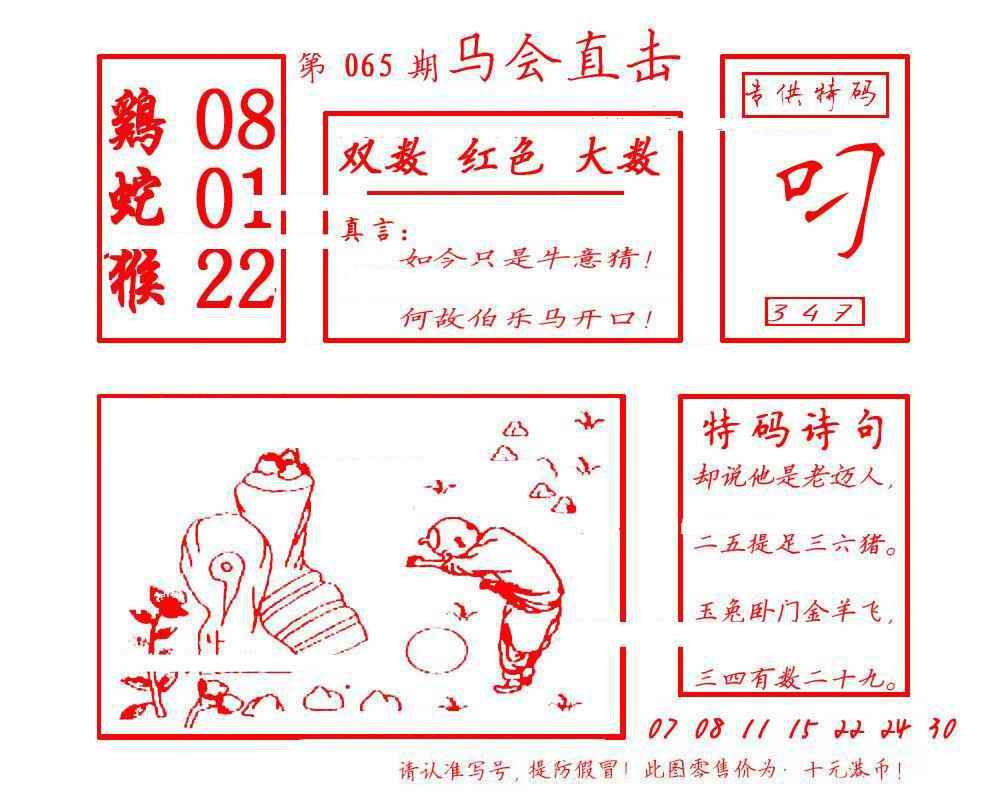 第 065 期 马会直击
鷄 08
蛇 01
猴 22
双数 红色 大数
真言：
如今只是牛意猜！
何故伯乐马开口！
专供特码
叼
3 4 7
特码诗句
却说他是老迈人，
二五提足三六猪。
玉兔卧门金羊飞，
三四有数二十九。
07 08 11 15 22 24 30
请认准写号，提防假冒！此图零售价为·十元港币！